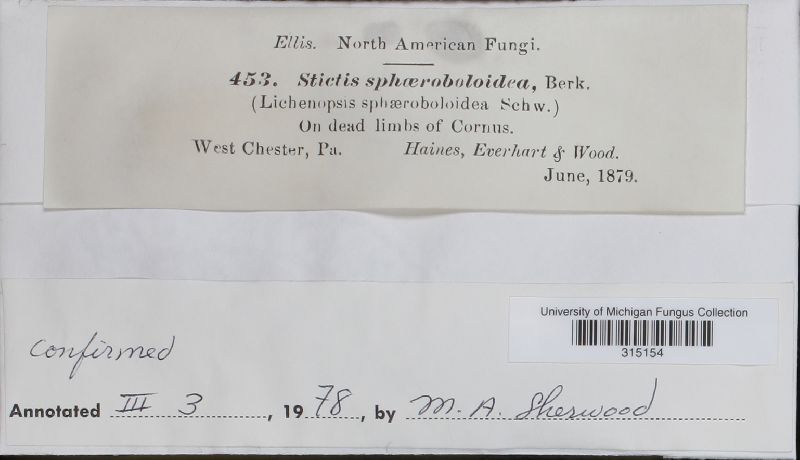 Ellis. North American Fungi.
453. Stictis sphæroboloidea, Berk.
(Lichenopsis sphæroboloidea Schw.)
On dead limbs of Cornus.
West Chester, Pa. Haines, Everhart & Wood.
June, 1879.
University of Michigan Fungus Collection
315154
confirmed
Annotated III 3, 1978, by M. A. Sherwood